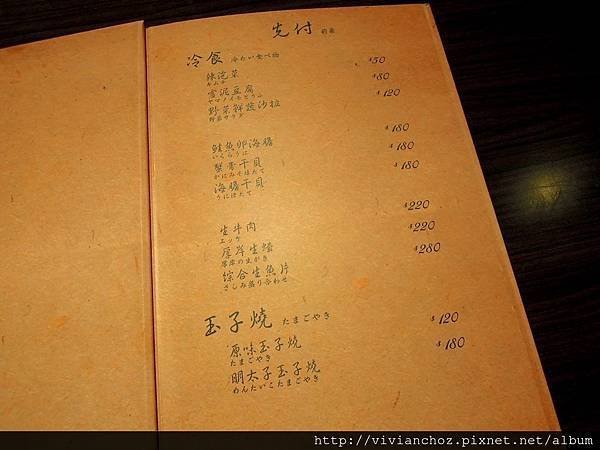 先付 前菜
冷食 冷たい食べ物
辣泡菜 $50
キムチ
雪泥豆腐 $80
ヤマノイモとうふ
野菜鮮蔬沙拉 $120
野菜サラダ
鮭魚卵海膽 $180
いくらうに
蟹膏干貝 $180
かにみそほたて
海膽干貝 $180
うにほたて
生牛肉 $220
ユッケ
厚岸生蠔 $220
厚岸の生がき
綜合生魚片 $280
さしみ盛り合わせ
玉子燒 たまごやき
原味玉子燒 $120
たまごやき
明太子玉子燒 $180
めんたいこたまごやき
http://vivianchoz.pixnet.net/album